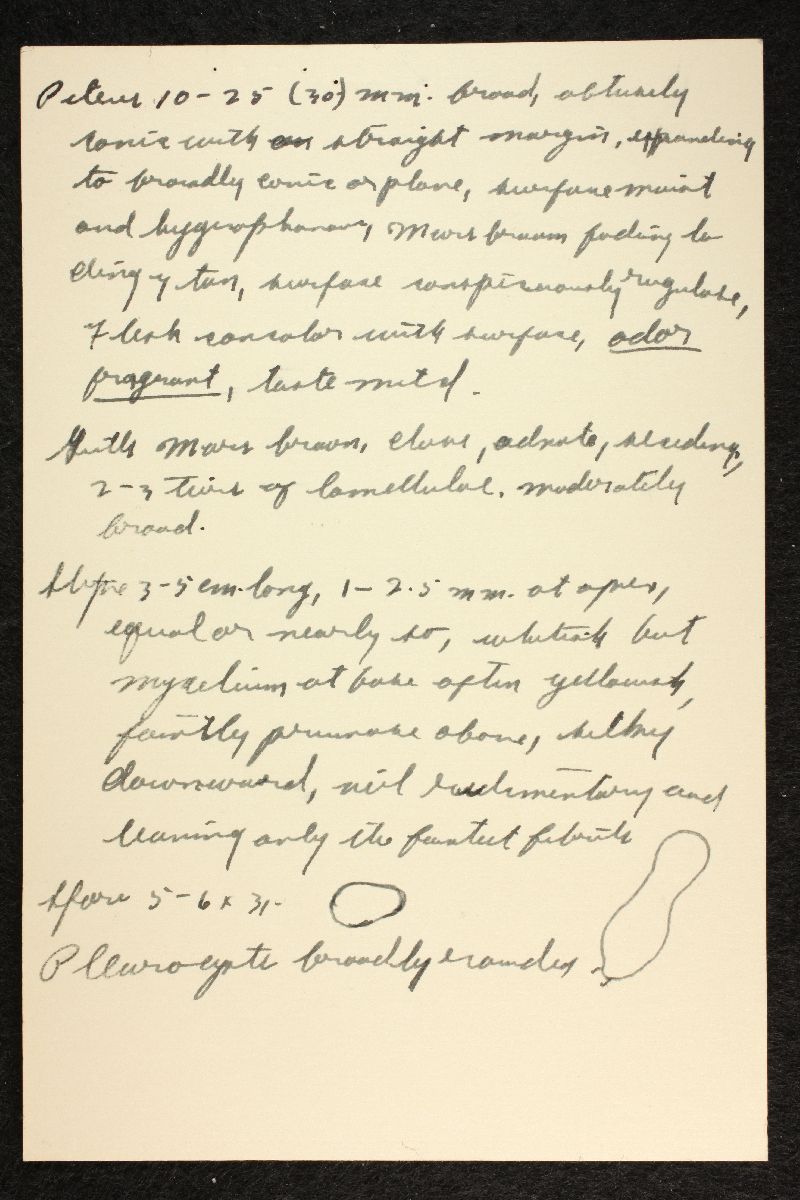 Pileus 10-25 (30) mm. broad, obtusely
conic with straight margin, expanding
to broadly conic or plane, surface moist
and hygrophanous, Mars brown fading to
dingy tan, surface conspicuously rugulose,
Flesh concolor with surface, odor
fragrant, taste mild.
Gills Mars brown, close, adnate, seceding,
2-3 tiers of lamellulae, moderately
broad.
Stipe 3-5 cm. long, 1-2.5 mm. at apex,
equal or nearly so, whitish but
mycelium at base often yellowish,
faintly pruinose above, silky
downward, veil rudimentary and
leaving only the faintest fibrils
Spore 5-6 x 3,-
Pleurocysts broadly rounded